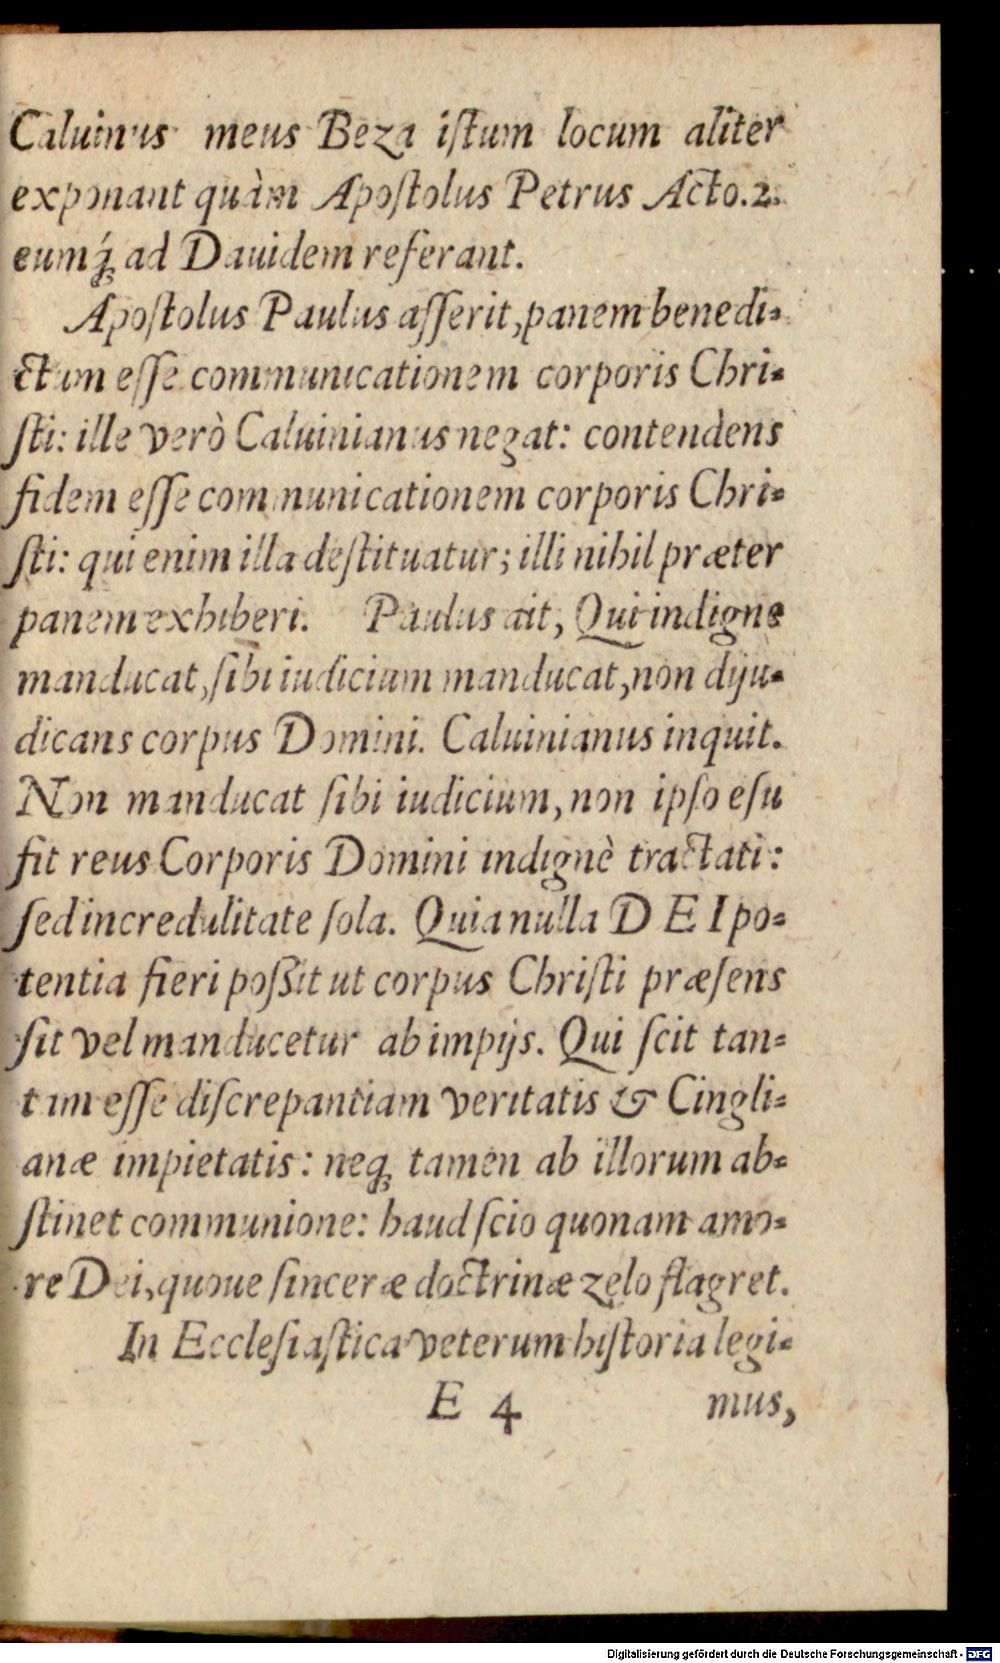 Caluinus meus Beza iſtum locum aliter
exponant quàm Apoſtolus Petrus Acto.2.
eumq́; ad Dauidem referant.
Apoſtolus Paulus aſſerit, panem benedi-
ctum eſſe communicationem corporis Chri-
ſti: ille verò Caluinianus negat: contendens
fidem eſſe communicationem corporis Chri-
ſti: qui enim illa deſtituatur; illi nihil præter
panem exhiberi. Paulus ait, Qui indigne
manducat, ſibi iudicium manducat, non diju-
dicans corpus Domini. Caluinianus inquit.
Non manducat ſibi iudicium, non ipſo eſu
fit reus Corporis Domini indignè tractati:
ſed incredulitate ſola. Quia nulla DEI po-
tentia fieri poßit ut corpus Chriſti præſens
ſit vel manducetur ab impijs. Qui ſcit tan-
tam eſſe diſcrepantiam veritatis & Cingli-
anæ impietatis: neq; tamen ab illorum ab-
ſtinet communione: haud ſcio quonam amo-
re Dei, quoue ſinceræ doctrinæ zelo flagret.
In Eccleſiaſtica veterum hiſtoria legi-
E 4 mus,
Digitalisierung gefördert durch die Deutsche Forschungsgemeinschaft - DFG